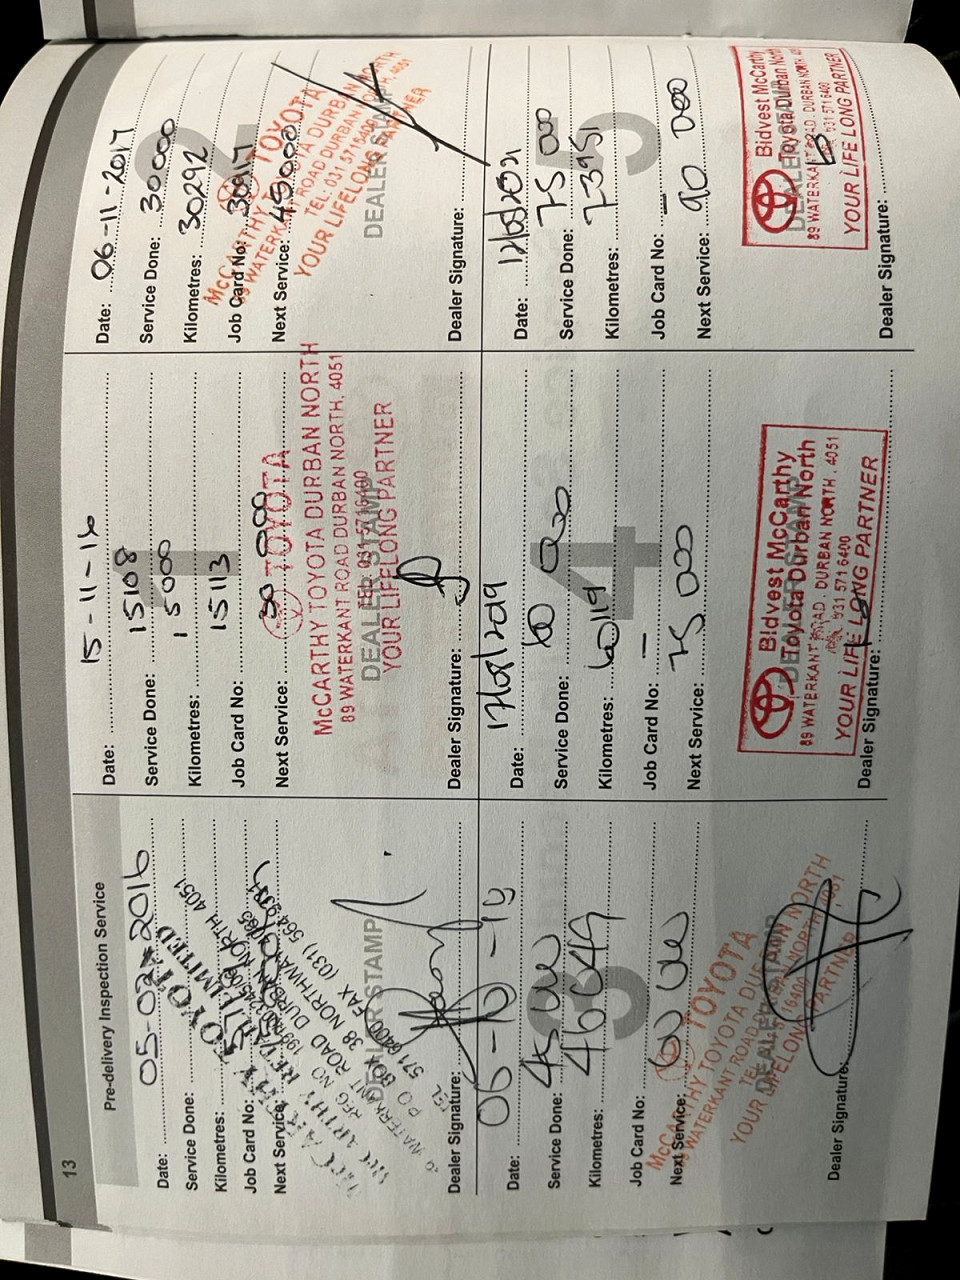 13
Pre-delivery Inspection Service
Date: 05-02-2016
Service Done:
Kilometres:
Job Card No:
Next Service:
DEALER STAMP
TOYOTA
LIMITED
FAX (031) 564
Dealer Signature:
1
Date: 15-11-16
Service Done: 15108
Kilometres: 15000
Job Card No: 15113
Next Service: 30 000
TOYOTA
McCARTHY TOYOTA DURBAN NORTH
89 WATERKANT ROAD DURBAN NORTH, 4051
TEL: 031 5716400
YOUR LIFELONG PARTNER
DEALER STAMP
Dealer Signature:
2
Date: 06-11-2017
Service Done: 30000
Kilometres: 30292
Job Card No: 30917
Next Service: 45000
TOYOTA
McCARTHY TOYOTA DURBAN NORTH
89 WATERKANT ROAD DURBAN NORTH, 4051
TEL: 031 5716400
YOUR LIFELONG PARTNER
DEALER STAMP
Dealer Signature:
3
Date: 06-10-18
Service Done: 45 000
Kilometres: 46049
Job Card No:
Next Service: 60 000
TOYOTA
McCARTHY TOYOTA DURBAN NORTH
89 WATERKANT ROAD DURBAN NORTH, 4051
TEL: 031 5716400
YOUR LIFELONG PARTNER
DEALER STAMP
Dealer Signature:
4
Date: 17/08/2019
Service Done: 60 000
Kilometres: 60119
Job Card No: —
Next Service: 75 000
Bidvest McCarthy
Toyota Durban North
89 WATERKANT ROAD, DURBAN NORTH, 4051
031 571 6400
YOUR LIFE LONG PARTNER
DEALER STAMP
Dealer Signature:
5
Date: 12/05/2021
Service Done: 75 000
Kilometres: 73951
Job Card No: —
Next Service: 90 000
Bidvest McCarthy
Toyota Durban North
89 WATERKANT ROAD, DURBAN NORTH, 4051
031 571 6400
YOUR LIFE LONG PARTNER
DEALER STAMP
Dealer Signature: